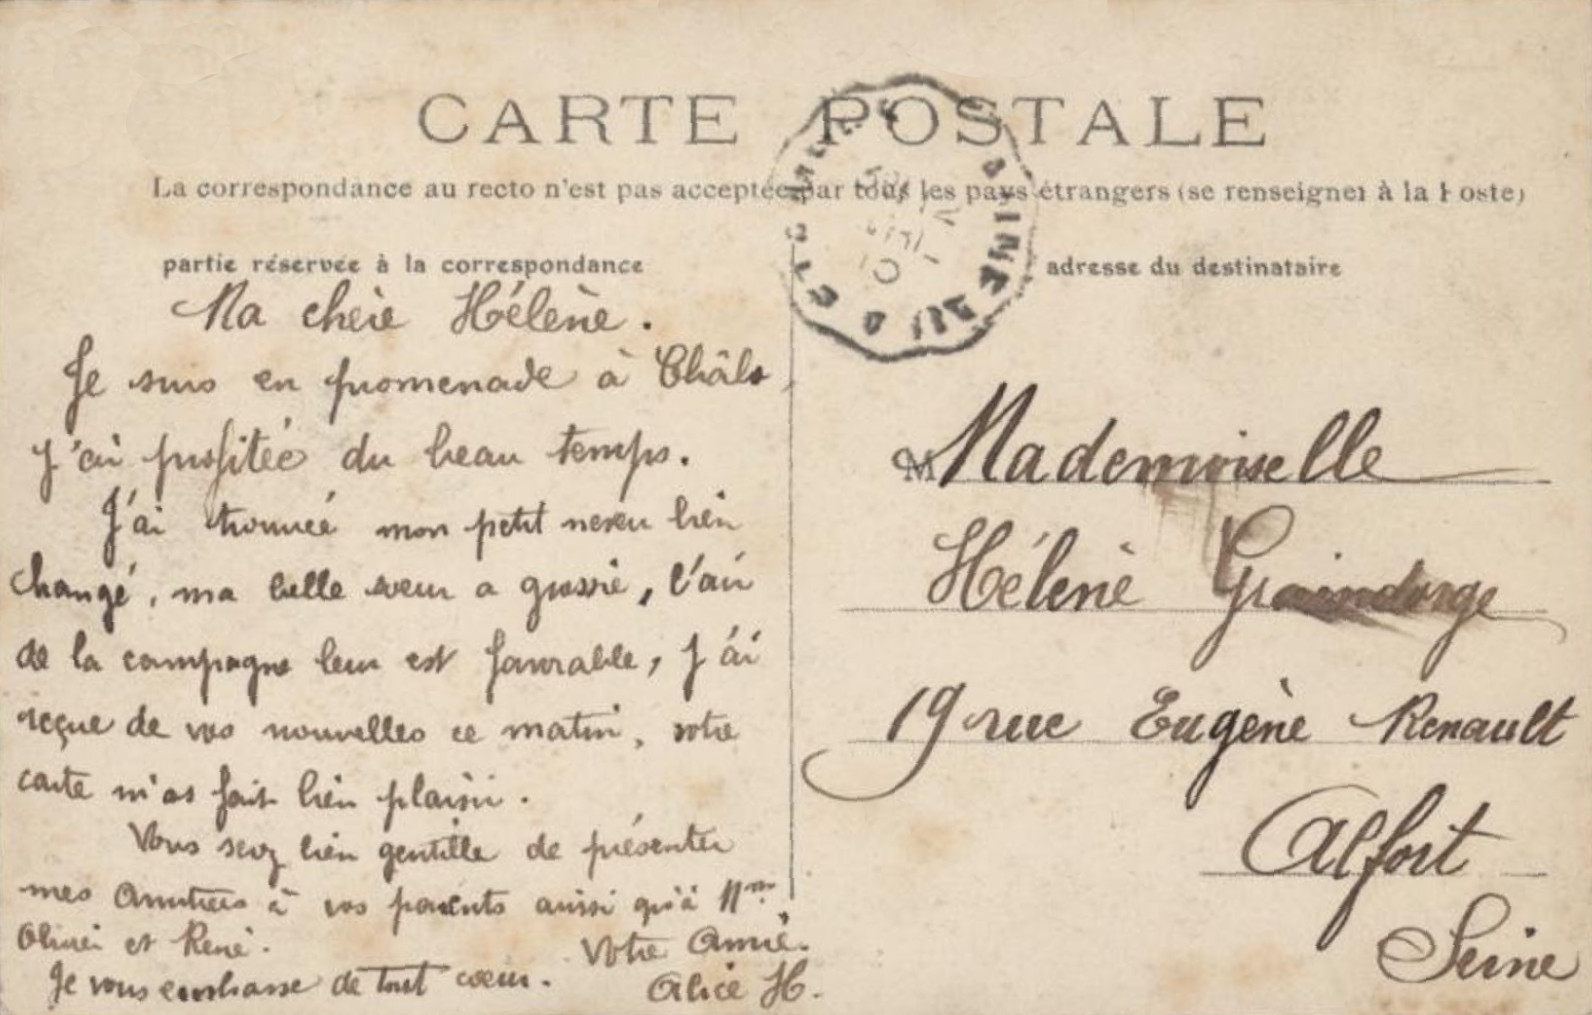 CARTE POSTALE
La correspondance au recto n'est pas acceptée par tous les pays étrangers (se renseigner à la Poste)
partie réservée à la correspondance
adresse du destinataire
Ma chère Hélène.
Je suis en promenade à Châls
j'ai profitée du beau temps.
J'ai trouvée mon petit neveu bien
changé, ma belle sœur a grossie, l'air
de la campagne leur est favorable, j'ai
reçue de vos nouvelles ce matin, votre
carte m'as fait bien plaisir.
Vous serez bien gentille de présenter
mes Amitiées à vos parents aussi qu'à Mme
Olivier et René.
Je vous embrasse de tout cœur.
Votre Amie.
Alice H.
M Mademoiselle
Hélène Graindorge
19 rue Eugène Renault
Alfort
Seine